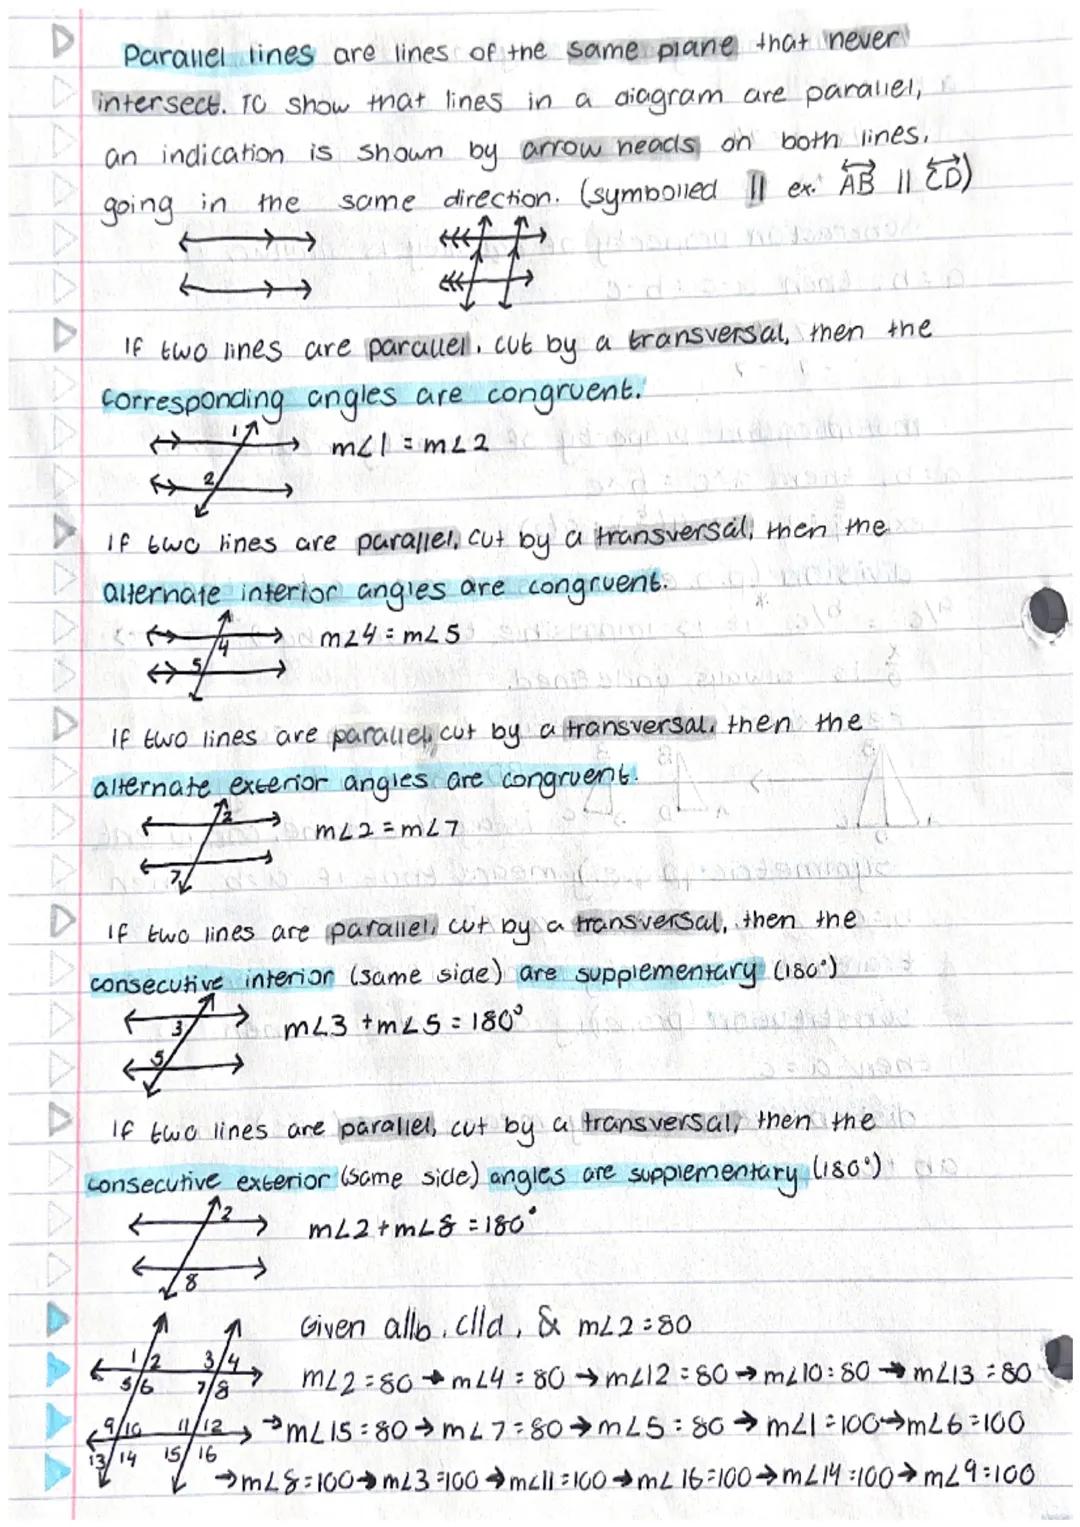 Parallel lines are lines of the same plane that never
intersect. To show that lines in a diagram are parallel,
an indication is shown by arrow heads on both lines,
going in the same direction. (symbolled || ex. AB || CD)
If two lines are parallel, cut by a transversal, then the
corresponding angles are congruent.
1
m∠1 = m∠2
2
If two lines are parallel, cut by a transversal, then the
alternate interior angles are congruent.
4
m∠4 = m∠5
5
If two lines are parallel, cut by a transversal, then the
alternate exterior angles are congruent.
2
m∠2 = m∠7
7
If two lines are parallel, cut by a transversal, then the
consecutive interior (same side) are supplementary (180°)
3
m∠3 + m∠5 = 180°
5
If two lines are parallel, cut by a transversal, then the
consecutive exterior (same side) angles are supplementary (180°)
2
m∠2 + m∠8 = 180°
8
Given a||b, c||d, & m∠2 = 80
1/2 3/4
5/6 7/8
m∠2 = 80 → m∠4 = 80 → m∠12 = 80 → m∠10 = 80 → m∠13 = 80
9/10 11/12
→ m∠15 = 80 → m∠7 = 80 → m∠5 = 80 → m∠1 = 100 → m∠6 = 100
13/14 15/16
→ m∠8 = 100 → m∠3 = 100 → m∠11 = 100 → m∠16 = 100 → m∠14 = 100 → m∠9 = 100